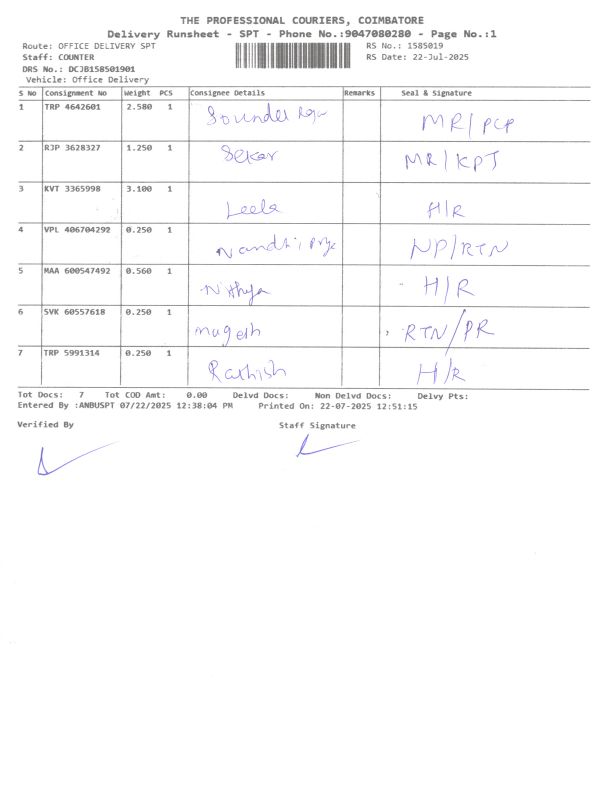 THE PROFESSIONAL COURIERS, COIMBATORE
Delivery Runsheet - SPT - Phone No.:9047080280 - Page No.:1
Route: OFFICE DELIVERY SPT RS No.: 1585019
Staff: COUNTER RS Date: 22-Jul-2025
DRS No.: DCJB158501901
Vehicle: Office Delivery
S No Consignment No Weight PCS Consignee Details Remarks Seal & Signature
1 TRP 4642601 2.580 1 Sounder Raju MR/PCP
2 RJP 3628327 1.250 1 Sekar MR/KPT
3 KVT 3365998 3.100 1 Leela H/R
4 VPL 406704292 0.250 1 Nandhi Priya NP/RTN
5 MAA 600547492 0.560 1 Nithya H/R
6 SVK 60557618 0.250 1 mugesh RTN/PR
7 TRP 5991314 0.250 1 Rathish H/R
Tot Docs: 7 Tot COD Amt: 0.00 Delvd Docs: Non Delvd Docs: Delvy Pts:
Entered By :ANBUSPT 07/22/2025 12:38:04 PM Printed On: 22-07-2025 12:51:15
Verified By Staff Signature